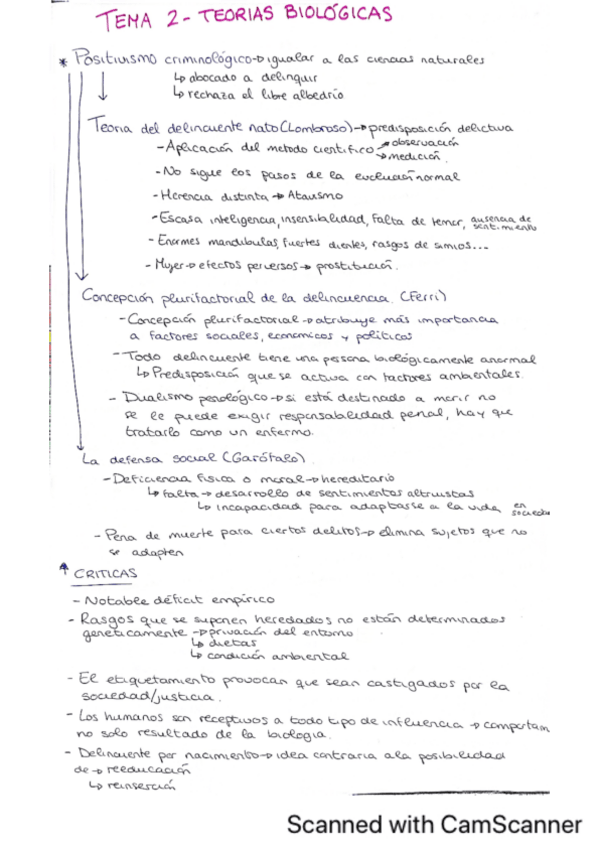 TEMA 2 - TEORIAS BIOLÓGICAS
* Positivismo criminológico → igualar a las ciencias naturales
↳ abocado a delinquir
↳ rechaza el libre albedrío
Teoría del delincuente nato (Lombroso) → predisposición delictiva
- Aplicación del metodo científico → observación
→ medición.
- No sigue los pasos de la evolución normal
- Herencia distinta → Atavismo
- Escasa inteligencia, insensibilidad, falta de temor, ausencia de
sentimiento
- Enormes mandíbulas, fuertes dientes, rasgos de simios...
- Mujer → efectos perversos → prostitución.
Concepción plurifactorial de la delincuencia. (Ferri)
- Concepción plurifactorial → atribuye más importancia
a factores sociales, económicos y políticos
- Todo delincuente tiene una persona biológicamente anormal
↳ Predisposición que se activa con factores ambientales.
- Dualismo penológico → si está destinado a no
se le puede exigir responsabilidad penal, hay que
tratarlo como un enfermo.
La defensa social (Garófalo)
- Deficiencia física o moral → hereditario
↳ falta → desarrollo de sentimientos altruistas
↳ incapacidad para adaptarse a la vida en
sociedad
- Pena de muerte para ciertos delitos → elimina sujetos que no
se adapten
CRITICAS
- Notable déficit empírico
- Rasgos que se suponen heredados no están determinados
genéticamente → privación del entorno
↳ dietas
↳ condición ambiental
- El etiquetamiento provocan que sean castigados por la
sociedad/justicia.
- Los humanos son receptivos a todo tipo de influencia → comportam
no solo resultado de la biología.
- Delincuente por nacimiento → idea contraria a la posibilidad
de → reeducación
↳ reinserción
Scanned with CamScanner